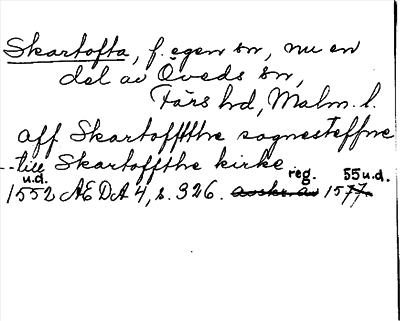 Skartofta, f. egen sn, nu en
del av Öveds sn,
Färs hd, Malm. l.
aff Skartoffthe sognesteffne
-- till Skartoffthe kirke
u.d. reg. 55 u.d.
1552 ÆDA 4, s. 326. avskr. av 1577.